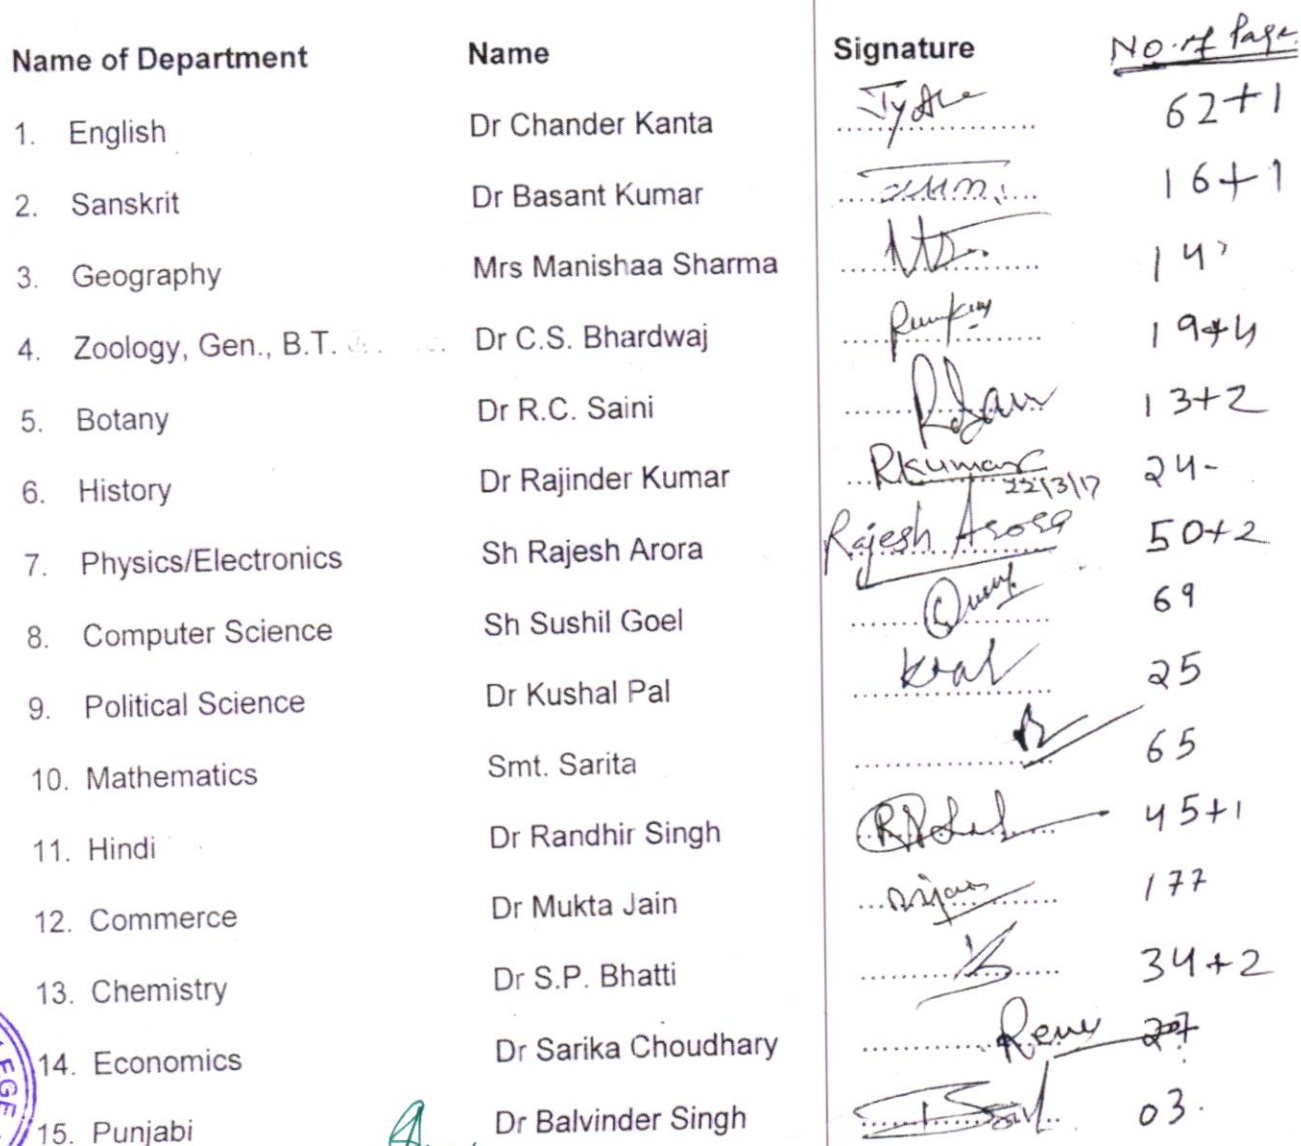 Name of Department Name Signature No. of Page
1. English Dr Chander Kanta 62+1
2. Sanskrit Dr Basant Kumar 16+1
3. Geography Mrs Manishaa Sharma 14
4. Zoology, Gen., B.T. Dr C.S. Bhardwaj 19+4
5. Botany Dr R.C. Saini 13+2
6. History Dr Rajinder Kumar Rkumar 24-
22/3/17
7. Physics/Electronics Sh Rajesh Arora Rajesh Arora 50+2
8. Computer Science Sh Sushil Goel 69
9. Political Science Dr Kushal Pal 25
10. Mathematics Smt. Sarita 65
11. Hindi Dr Randhir Singh 45+1
12. Commerce Dr Mukta Jain 177
13. Chemistry Dr S.P. Bhatti 34+2
14. Economics Dr Sarika Choudhary Renu 27
15. Punjabi Dr Balvinder Singh 03.